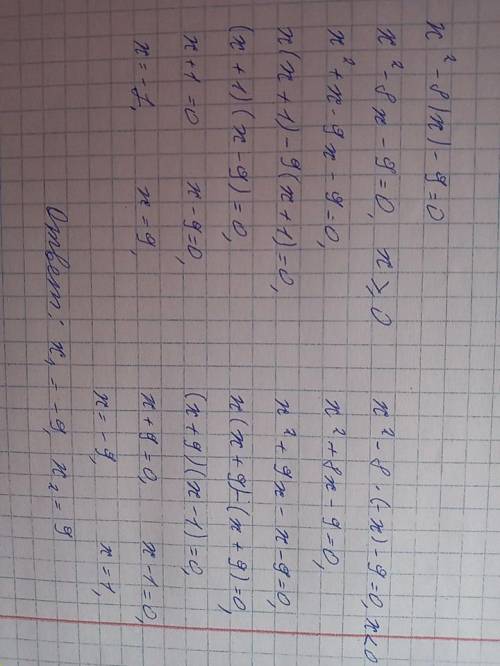 x² - 8|x| - 9 = 0
x² - 8x - 9 = 0, x ⩾ 0
x² + x - 9x - 9 = 0,
x(x + 1) - 9(x + 1) = 0,
(x + 1)(x - 9) = 0,
x + 1 = 0 x - 9 = 0,
x = -1, x = 9,
x² - 8·(-x) - 9 = 0, x < 0
x² + 8x - 9 = 0,
x² + 9x - x - 9 = 0,
x(x + 9) - (x + 9) = 0,
(x + 9)(x - 1) = 0,
x + 9 = 0, x - 1 = 0,
x = -9, x = 1,
Ответ: x₁ = -9, x₂ = 9